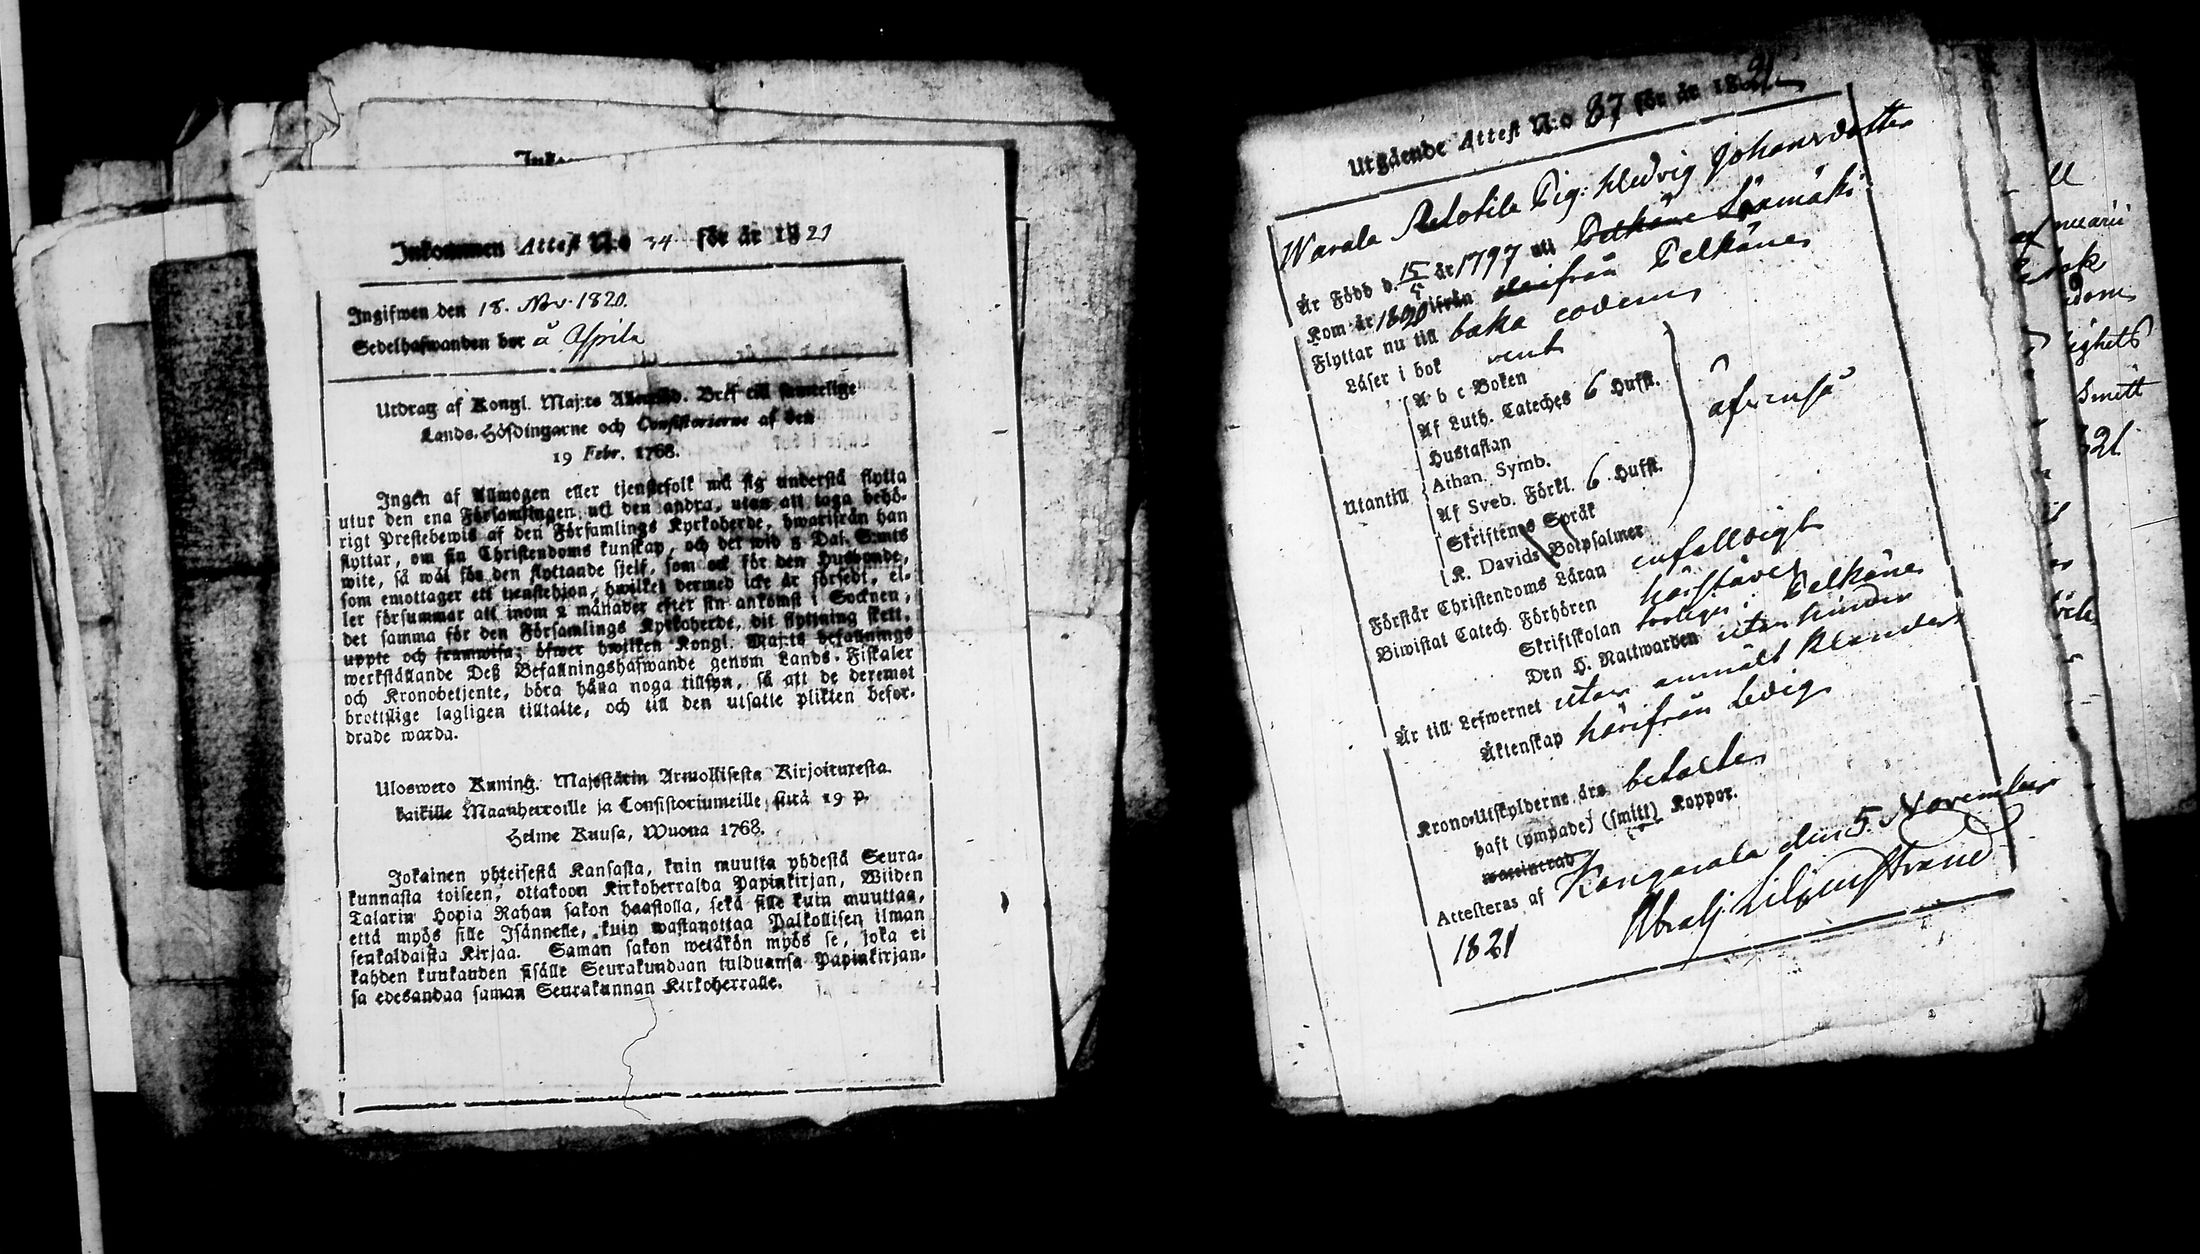 Inkommen Attest N:o 34 för år 1821
Ingifwen den 18. Nov. 1820.
Sedelhafwanden bor å Appila
Utdrag af Kongl. Maj:ts Allmänd. Bref till samtelige
Lands-Höfdingarne och Consistorierne af den
19 Febr. 1768.
Ingen af Allmogen eller tjenstefolk må sig understå flytta
utur den ena Församlingen uti den andra, utan att taga behö-
rigt Prestebewis af den Församlings Kyrkoherde, hwarifrån han
flyttar, om sin Christendoms kunskap, och det wid 5 Dal. S:mts
wite, så wäl för den flyttande sjelf, som ock för den Husbonde,
som emottager ett tjenstehjon, hwilket dermed icke är försedt, el-
ler försummar att inom 2 månader efter sin ankomst i Socknen,
det samma för den Församlings Kyrkoherde, dit flyttning skett,
uppte och framwisa; öfwer hwilken Kongl. Maj:ts befallnings
werkställande Deß Befallningshafwande genom Lands-Fiskaler
och Kronobetjente, böra hålla noga tillsyn, så att de deremot
brottslige lagligen tilltalte, och till den utsatte plikten befor-
drade warda.
Uloswero Kuning. Majestätin Armollisesta Kirjoituresta
kaikille Maanherroille ja Consistoriumeille, siitä 19 p.
Helme Kuusa, Wuonna 1768.
Jokainen yhteisestä Kansasta, kuin muutta yhdestä Seura-
kunnasta toiseen, ottakoon Kirkoherralda Papinkirjan, Wiiden
Talarin Hopia Rahan sakon haastolla, sekä sille kuin muuttaa,
että myös sille Isännelle, kuin wastanottaa Palkollisen ilman
senkaldaista Kirjaa. Saman sakon wetäkön myös se, joka ei
kahden kuukauden sisälle Seurakundaan tulduansa Papinkirjan-
sa edesandaa saman Seurakunnan Kirkoherralle.
Utgående Attest N:o 37 för år 1821
Warala Pig: Hedvig Johansdotter
Är Född d. 15/5 år 1797 uti Pelkäne
Kom år 1820 ifrån därifrån Pelkäne
Flyttar nu till baka eodem
Läser i bok rent
A b c Boken
Af Luth. Cateches 6 Hufst.
Hustaflan
Athan. Symb.
Utantill
Af Sveb. Förkl. 6 Hufst.
Skriftenes Språk
K. Davids Botpsalmer
äfvenså
Förstår Christendoms Läran enfalldigt
Biwistat Catech. Förhören härstädes
Skriftskolan Pelkäne
Den H. Nattwarden utan hinder
Är till Lefwernet utan anmält klander
Äktenskap härifrån ledig
Krono-Utskylderne äro betalte
haft (ympade) (smitt) Koppor.
Attesteras af Kangasala den 5 November
1821 Abrah: Liljenstrand